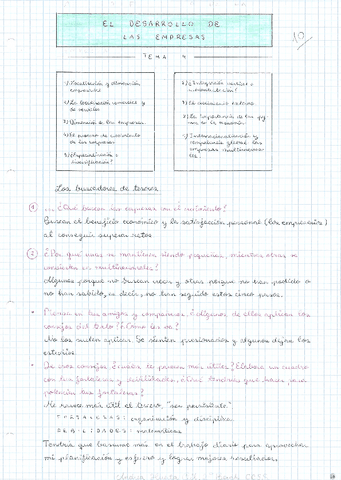 EL DESARROLLO DE
LAS EMPRESAS
10
TEMA 4
1) Localización y dimensión empresarial
2) La localización comercial y de servicio
3) Dimensión de las empresas
4) El proceso de crecimiento de las empresas
5) ¿Especialización o diversificación?
6) ¿Integración vertical o subcontratación?
7) El crecimiento externo
8) La importancia de las pymes en la economía
9) Internacionalización y competencia global: las empresas multinacionales.
Los buscadores de tesoros
1 ... ¿Qué buscan los empresarios en el crecimiento?
Buscan el beneficio económico y la satisfacción personal (los empresarios)
al conseguir superar retos.
2 ¿Por qué unas se mantienen siendo pequeñas, mientras otras se
convierten en multinacionales?
Algunas porque no buscan crecer y otras porque no han podido o
no han sabido, es decir, no han seguido estos cinco pasos.
• Piensa en tus amigos y compañeros. ¿Algunos de ellos aplican los
consejos del texto? ¿Cómo les va?
No los suelen aplicar. Se sienten presionados y algunos dejan los
estudios.
• De esos consejos ¿cuáles te parecen más útiles? Elabora un cuadro
con tus fortalezas y debilidades. ¿Qué tendrías que hacer para
potenciar tus fortalezas?
Me parece más útil el tercero, "ser persistente."
FORTALEZAS: organización y disciplina
DEBILIDADES: matemáticas
Tendría que basarme más en el trabajo diario para aprovechar
mi planificación y esfuerzo y lograr mejores resultados.